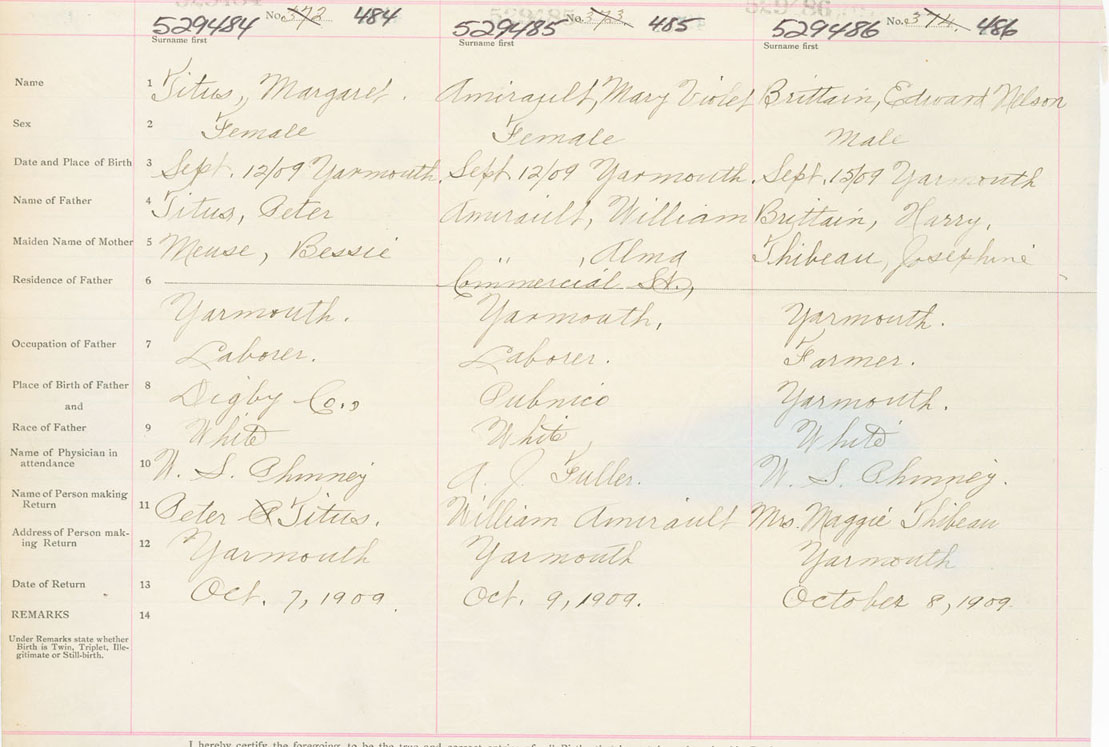 529484 529485 529486
No. 372 484 No. 373 485 No. 374 486
529484 529485 529486
Surname first Surname first Surname first
Name 1 Titus, Margaret. Amirault, Mary Violet Brittain, Edward Nelson
Sex 2 Female Female Male
Date and Place of Birth 3 Sept. 12/09 Yarmouth. Sept. 12/09 Yarmouth. Sept. 15/09 Yarmouth
Name of Father 4 Titus, Peter Amirault, William Brittain, Harry,
Maiden Name of Mother 5 Meuse, Bessie " , Alma Thibeau, Josephine
Residence of Father 6 Commercial St.,
Yarmouth. Yarmouth, Yarmouth.
Occupation of Father 7 Laborer. Laborer. Farmer.
Place of Birth of Father 8 Digby Co., Pubnico Yarmouth.
and
Race of Father 9 White White, White
Name of Physician in
attendance 10 W. S. Phinney A. J. Fuller. W. S. Phinney.
Name of Person making
Return 11 Peter Titus. William Amirault Mrs. Maggie Thibeau
Address of Person mak-
ing Return 12 Yarmouth Yarmouth Yarmouth
Date of Return 13 Oct. 7, 1909. Oct. 9, 1909. October 8, 1909.
REMARKS 14
Under Remarks state whether
Birth is Twin, Triplet, Ille-
gitimate or Still-birth.
I hereby certify the foregoing to be the true and correct entries of all Births